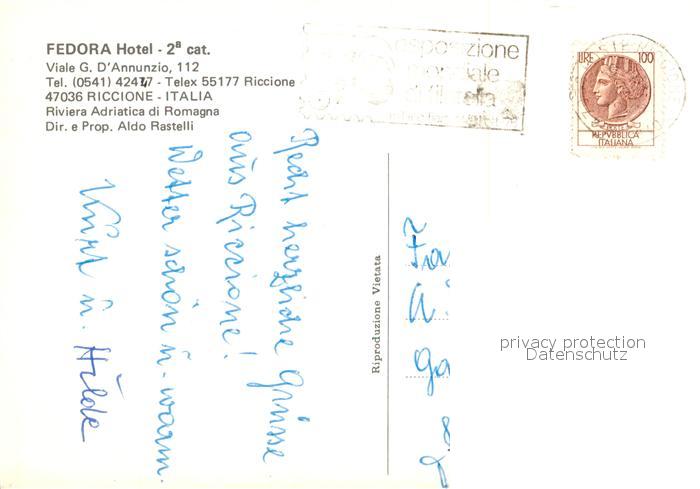 FEDORA Hotel - 2ª cat.
Viale G. D'Annunzio, 112
Tel. (0541) 42417 - Telex 55177 Riccione
47036 RICCIONE - ITALIA
Riviera Adriatica di Romagna
Dir. e Prop. Aldo Rastelli
esposizione
mondiale
di filatelia
LIRE 100
REPVBBLICA
ITALIANA
Recht herzliche Grüsse
aus Riccione!
Wetter schön u. warm.
Kurt u. Hilde
Riproduzione Vietata
privacy protection
Datenschutz